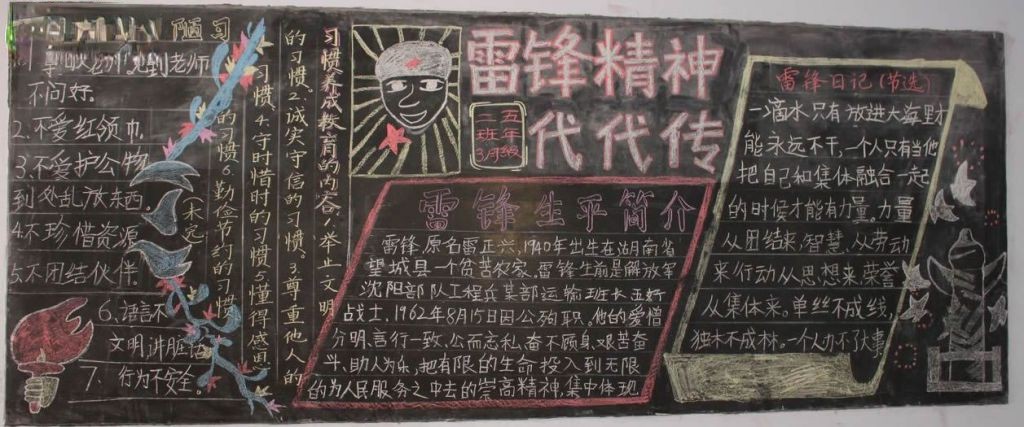 陋习
见到老师
不问好。
2.不爱红领巾
3.不爱护公物
到处乱放东西。
4.不珍惜资源
5.不团结伙伴。
6.语言不
文明,讲脏话
7、行为不安全。
习惯养成教育的内容:举止文明
的习惯。2.诚实守信的习惯。3.尊重他人的
习惯。4.守时惜时的习惯5.懂得感恩
的习惯6.勤俭节约的习惯
(未完)
雷锋精神
代代传
五年级
二班
3月
雷锋生平简介
雷锋原名雷正兴,1940年出生在湖南省
望城县一个贫苦农家,雷锋生前是解放军
沈阳部队工程兵某部运输班长五好
战士,1962年8月15日因公殉职。他的爱憎
分明、言行一致、公而忘私、奋不顾身、艰苦奋
斗、助人为乐,把有限的生命投入到无限
的为人民服务之中去的崇高精神,集中体现
雷锋日记(节选)
一滴水只有放进大海里才
能永远不干,一个人只有当他
把自己和集体融合一起
的时候才能有力量。力量
从团结来,智慧从劳动
来行动从思想来,荣誉
从集体来。单丝不成线,
独木不成林。一个人办不了大事